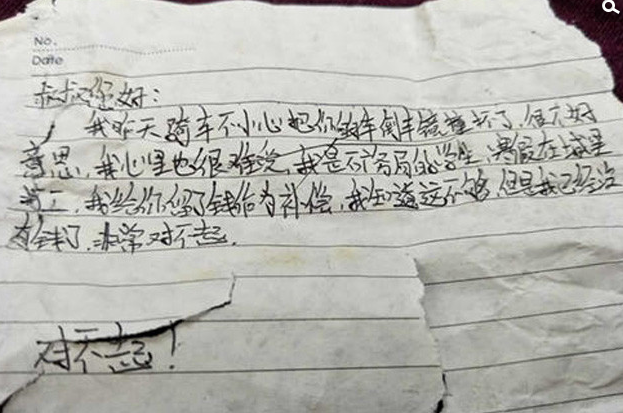 No.
Date
叔叔您好:
我昨天骑车不小心把你的车倒车镜撞坏了,很不好
意思,我心里也很难受,我是不高的学生,寒假在城里
打工,我给你了钱作为补偿,我知道这不够,但是我已经没
有钱了,非常对不起.
对不起!